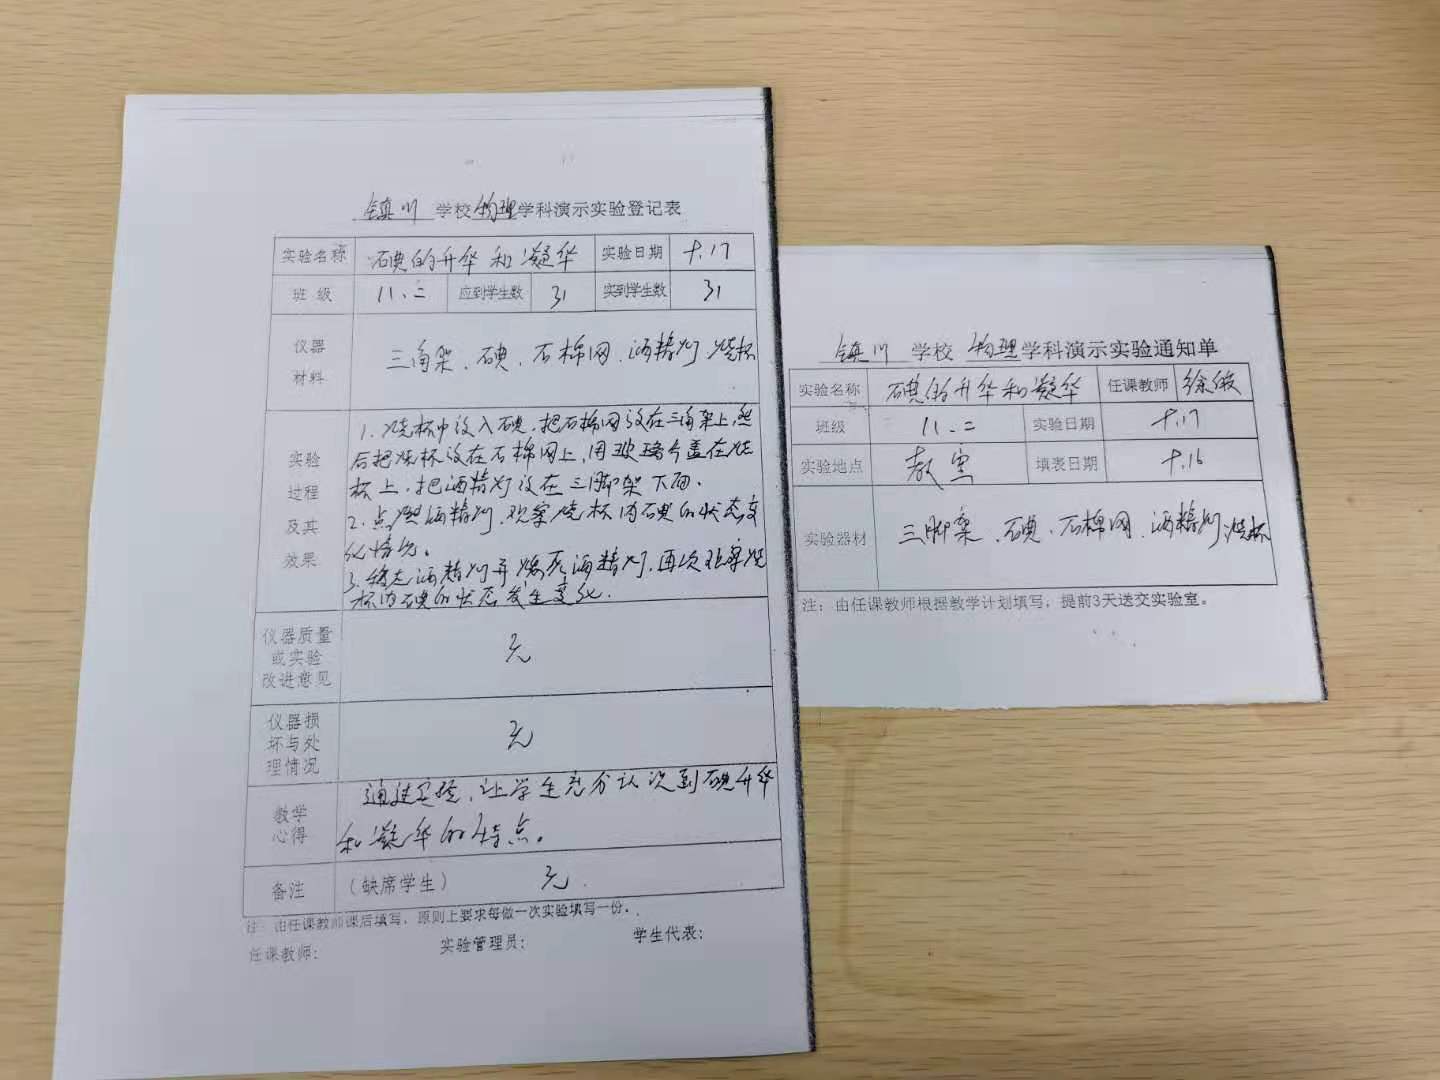 镇川 学校 物理 学科演示实验登记表
实验名称 碘的升华和凝华 实验日期 9.17
班级 八、二 应到学生数 31 实到学生数 31
仪器材料 三角架、碘、石棉网、酒精灯、烧杯
实验过程及其效果
1、烧杯中放入碘,把石棉网放在三角架上,然
后把烧杯放在石棉网上,用玻璃片盖在烧
杯上,把酒精灯放在三脚架下面.
2、点燃酒精灯,观察烧杯内碘的状态变
化情况。
3、移走酒精灯并熄灭酒精灯,再次观察烧
杯内碘的状态发生变化.
仪器质量或实验改进意见 无
仪器损坏与处理情况 无
教学心得 通过实验,让学生充分认识到碘升华
和凝华的特点。
备注 (缺席学生) 无.
注:由任课教师课后填写,原则上要求每做一次实验填写一份。
任课教师: 实验管理员: 学生代表:
镇川 学校 物理 学科演示实验通知单
实验名称 碘的升华和凝华 任课教师 徐
班级 八、二 实验日期 9.17
实验地点 教室 填表日期 9.16
实验器材 三脚架、碘、石棉网、酒精灯、烧杯
注:由任课教师根据教学计划填写,提前3天送交实验室。